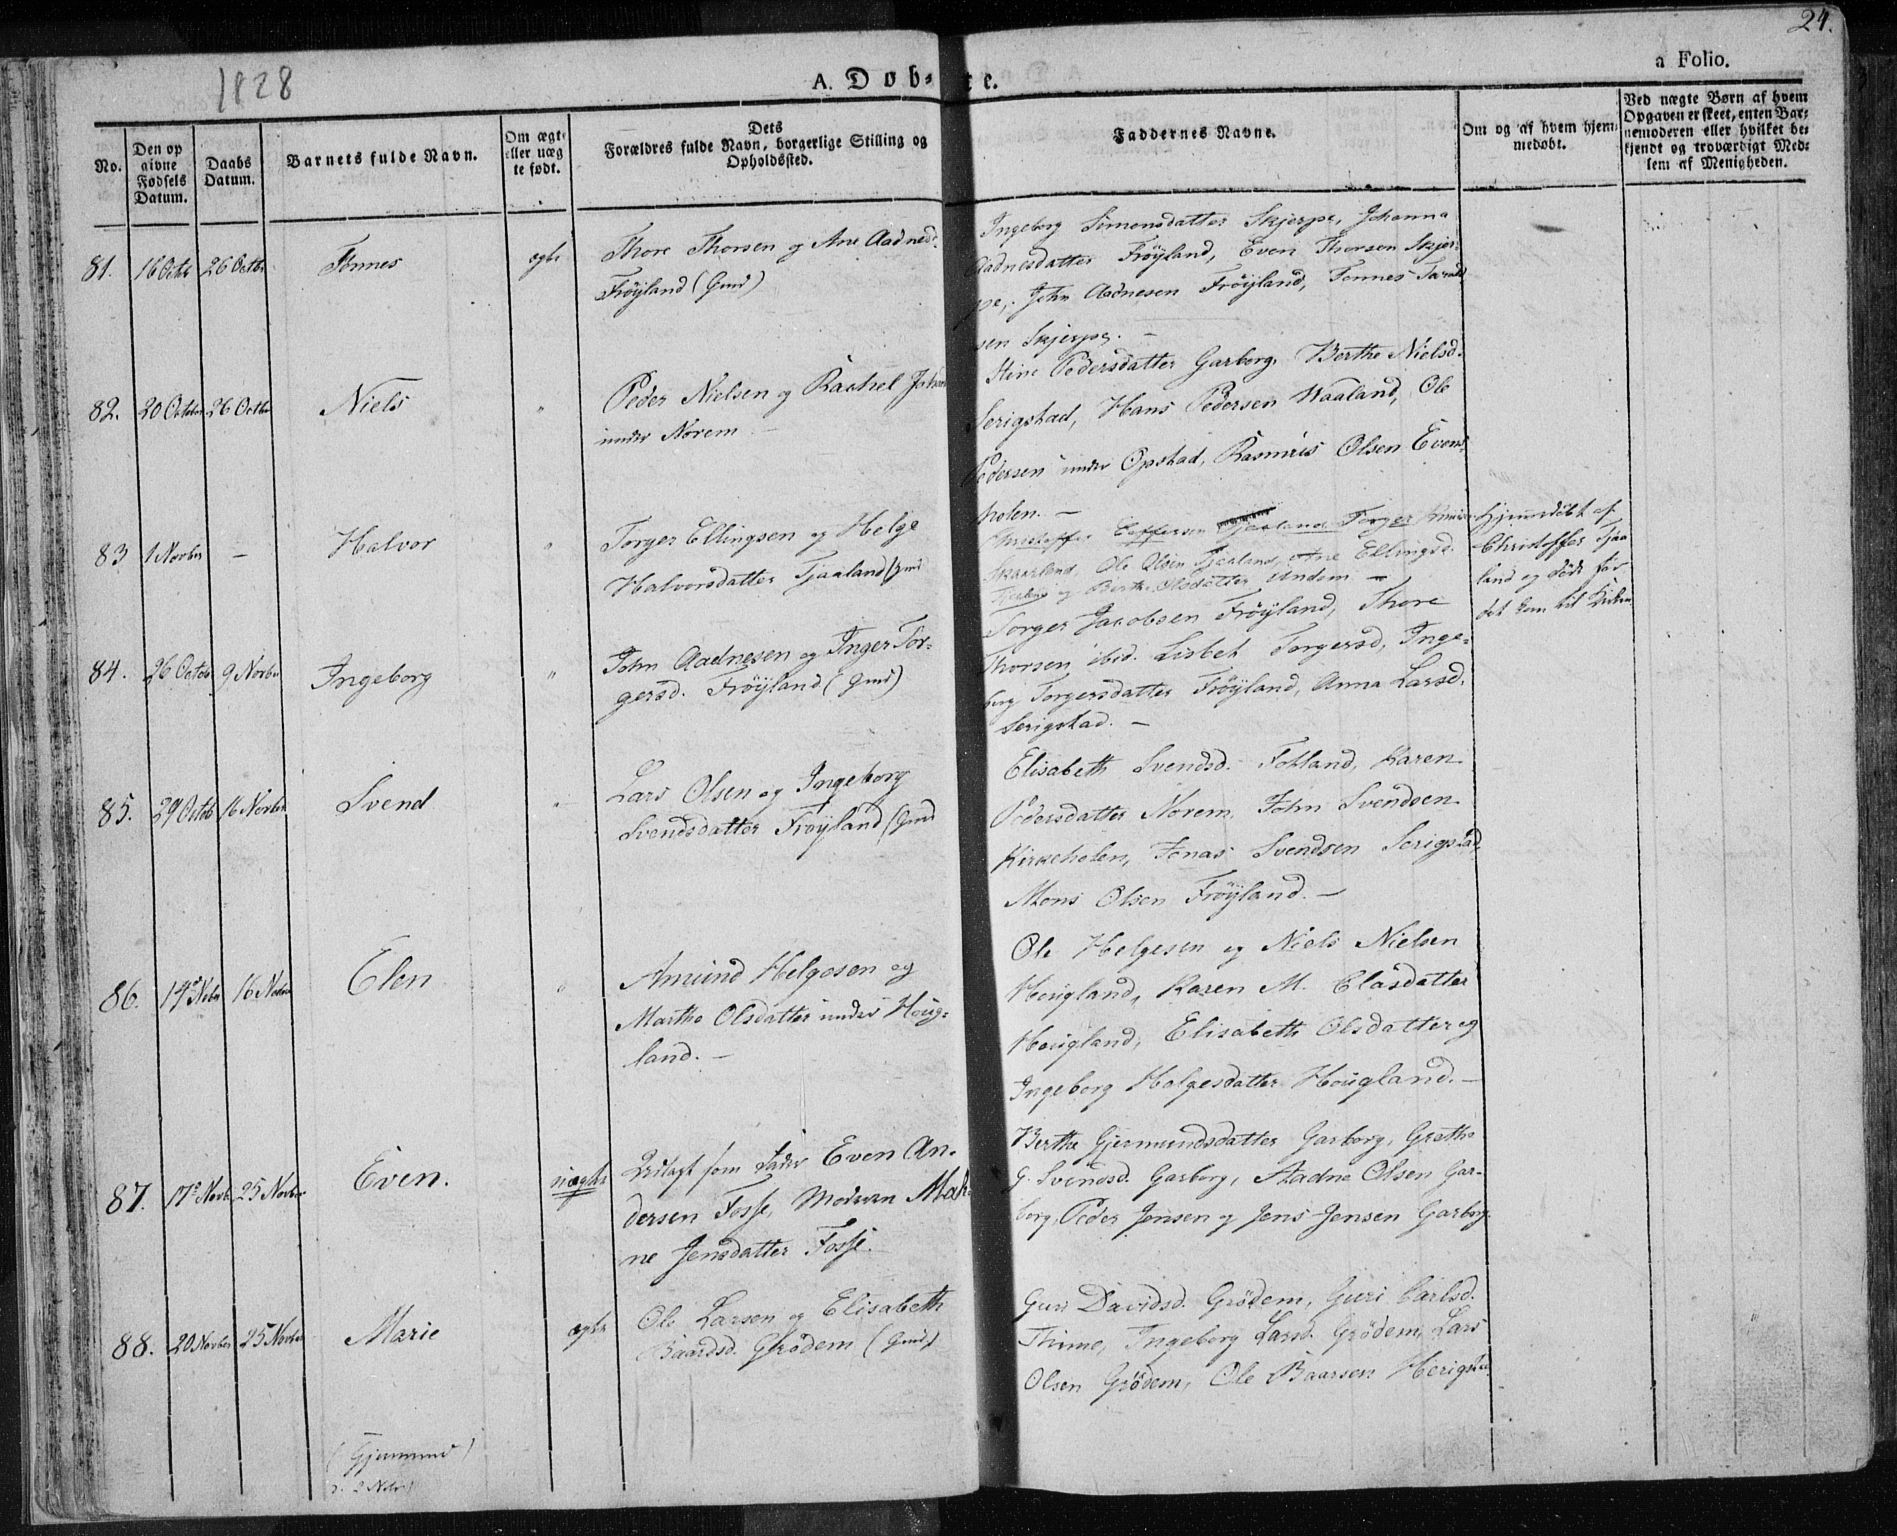 24.
1828
A. Døb-
te.
a Folio.
No.
Den op
givne
Fødsels
Datum.
Daabs
Datum.
Barnets fulde Navn.
Om ægte
eller uæg
te født.
Dets
Forældres fulde Navn, borgerlige Stilling og
Opholdssted.
Faddernes Navne.
Om og af hvem hjem-
medøbt.
Ved uægte Børn af hvem
Opgaven er skeet, enten Bar-
nemoderen eller hvilket be-
kjendt og troværdigt Med-
lem af Menigheden.
81. 16 Octb 26 Octbr Tønnes ægte
Thore Thorsen og Ane Aadnesd.
Frøyland (Gmd)
Ingeborg Simonsdatter Skjerpe, Johanna
Aadnesdatter Frøyland, Even Thorsen Skjer-
pe, John Aadnesen Frøyland, Tønnes
sen Skjerpe. —
82. 20 October 26 Octbr Niels "
Peder Nielsen og Rachel
under Norem —
Stine Pedersdatter Garborg, Berthe Nielsd.
Serigstad, Hans Pedersen Waaland, Ole
Pedersen under Opstad, Rasmus Olsen Evens-
holen. —
83 1 Novber — Halvor "
Torger Ellingsen og Helge
Halvorsdatter Tjaaland (Gmd
Christoffer Tjaaland Torger
Skaarland, Ole Olsen Tjaaland, Ane Ellingsd.
og Berthe Olsdatter Undem —
Hjemdøbt af
Christoffer Tjaa
land og døde før
det kom til Kirken
84. 26 Octob 9 Novbr Ingeborg "
John Aadnesen og Inger Tor-
gersd. Frøyland (Gmd)
Torger Jacobsen Frøyland, Thore
Thorsen ibid. Lisbet Torgersd, Inge-
borg Torgersdatter Frøyland, Anna Larsd.
Serigstad. —
85. 29 Octob 16 Novber Svend "
Lars Olsen og Ingeborg
Svendsdatter Frøyland (Gmd
Elisabeth Svendsd. Fotland, Karen
Pedersdatter Norem, John Svendsen
Kirkeholen, Jonas Svendsen Serigstad,
Mons Olsen Frøyland. —
86. 14de Novbr 16 Novbr Elen "
Amund Helgesen og
Marthe Olsdatter under Houg-
land. —
Ole Helgesen og Niels Nielsen
Hougland, Karen M. Elasdatter
Hougland, Elisabeth Olsdatter og
Ingeborg Helgesdatter Hougland. —
87. 17de Novbr 25 Novber Even. uægte
Udlagt som Fader Even An-
dersen Fosse, Moderen Mal-
ne Jensdatter Fosse.
Berthe Gjermundsdatter Garborg, Grethe
G. Svendsd. Garborg, Aadne Olsen Gar-
borg, Peder Jensen og Jens Jensen Garborg.
88. 20 Novber 25 Novbr Marie ægte
Ole Larsen og Elisabeth
Baardsd. Grødem (Gmd)
Guri Davidsd. Grødem, Guri Carlsd.
Thime, Ingeborg Larsd. Grødem, Lars
Olsen Grødem, Ole Baarsen Herigstad
(Gjermund)